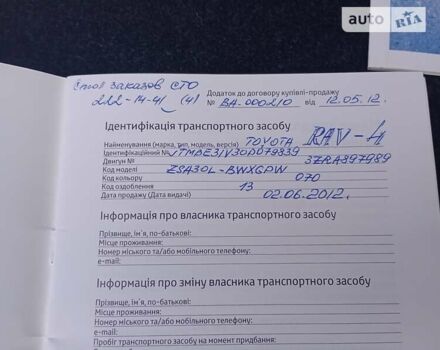 auto RIA
Стол заказов СТО
222-14-41 (4)
Додаток до договору купівлі-продажу
№ ВА-000210 від 12.05.12.
Ідентифікація транспортного засобу
Найменування (марка, тип, модель, версія) TOYOTA RAV-4
Ідентифікаційний № JTMBE31V30D079839
Двигун № 3ZRA897989
Код моделі ZSA30L-BWXGPW
Код кольору 070
Код оздоблення 13
Дата продажу (Дата видачі) 02.06.2012.
Інформація про власника транспортного засобу
Прізвище, ім'я, по-батькові:
Місце проживання:
Номер міського та/або мобільного телефону:
e-mail:
Інформація про зміну власника транспортного засобу
Прізвище, ім'я, по-батькові:
Місце проживання:
Номер міського та/або мобільного телефону:
e-mail:
Пробіг транспортного засобу на момент придбання: